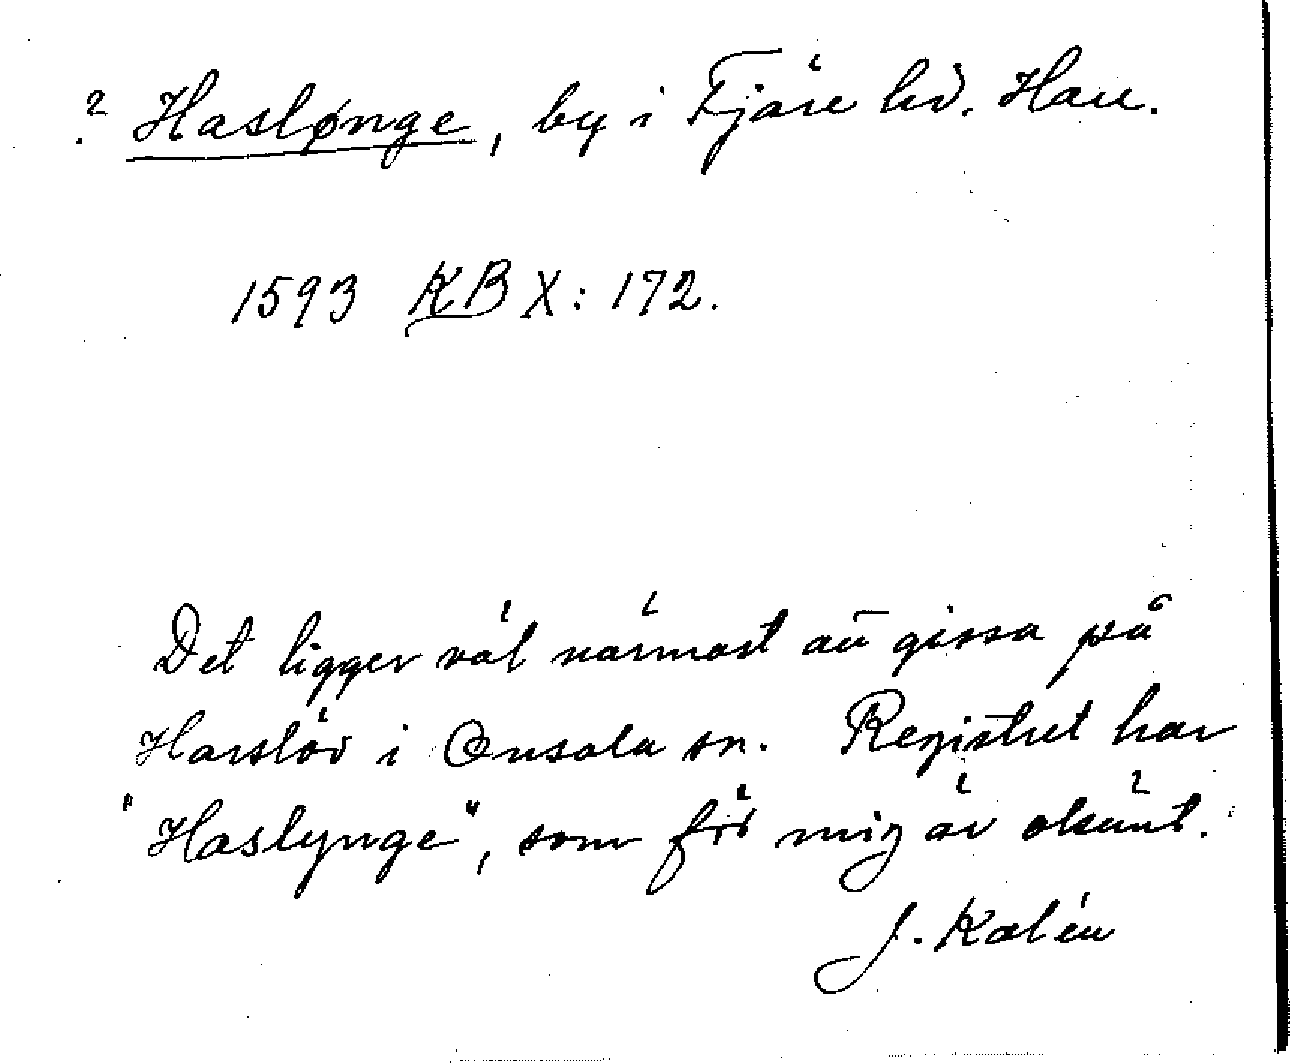 ? Haslønge, by i Fjäre hd. Hall.
1593 KB X: 172.
Det ligger väl närmast att gissa på
Harslöv i Onsala sn. Registret har
"Haslynge", som för mig är okänt.
J. Kalén